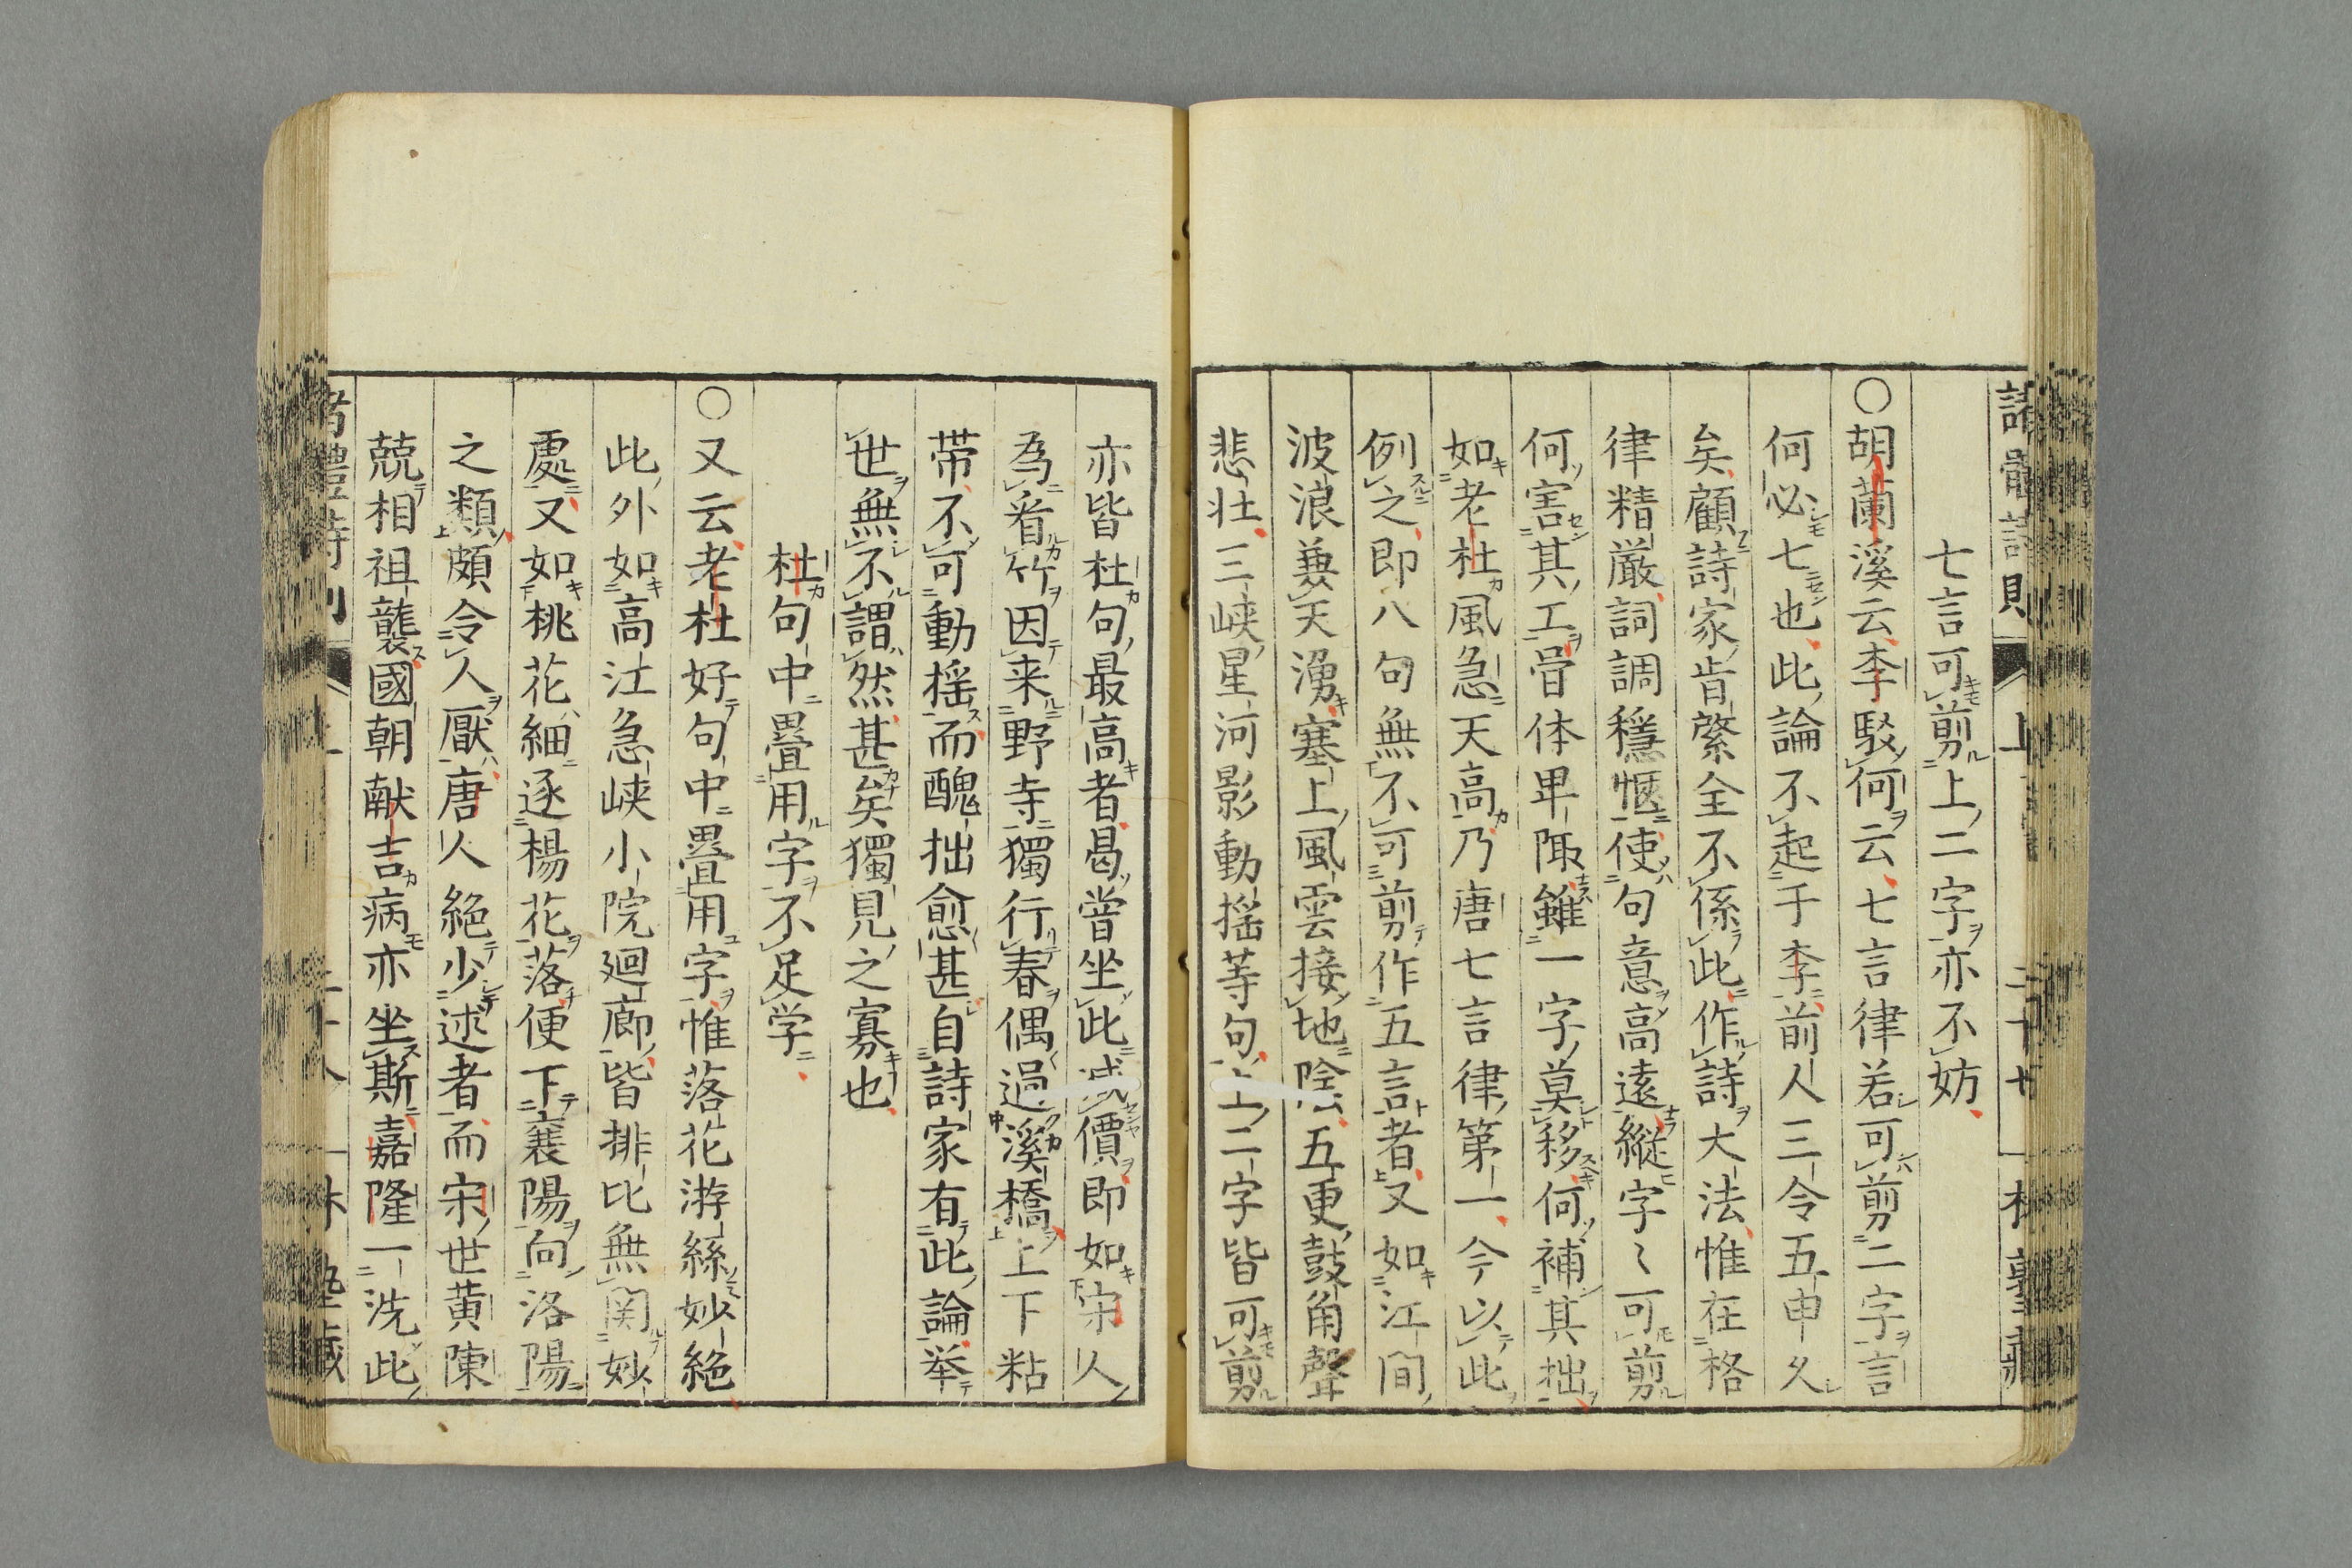 七言可剪上二字亦不妨
○胡蘭溪云李駁何云七言律若可剪二字言
何必七也此論不起于李前人三令五申久
矣顧詩家肯綮全不係此作詩大法惟在格
律精厳詞調穩愜使句意高遠縦字〻可剪
何害其工骨体卑陬雖一字莫移何補其拙
如老杜風急天高乃唐七言律第一今以此
例之即八句無不可剪作五言者又如江間
波浪兼天湧塞上風雲接地陰五更鼓角聲
悲壮三峡星河影動揺等句上二字皆可剪
亦皆杜句最高者曷嘗坐此减價即如宋人
為看竹因来野寺獨行春偶過溪橋上下粘
带不可動揺而醜拙愈甚自詩家有此論举
世無不謂然甚矣獨見之寡也
杜句中疊用字不足学
○又云老杜好句中疊用字惟落花游絲妙絶
此外如高江急峡小院廻廊皆排比無関妙
處又如桃花細逐楊花落便下襄陽向洛陽
之類頗令人厭唐人絶少述者而宋世黄陳
兢相祖襲國朝献吉病亦坐斯嘉隆一洗此